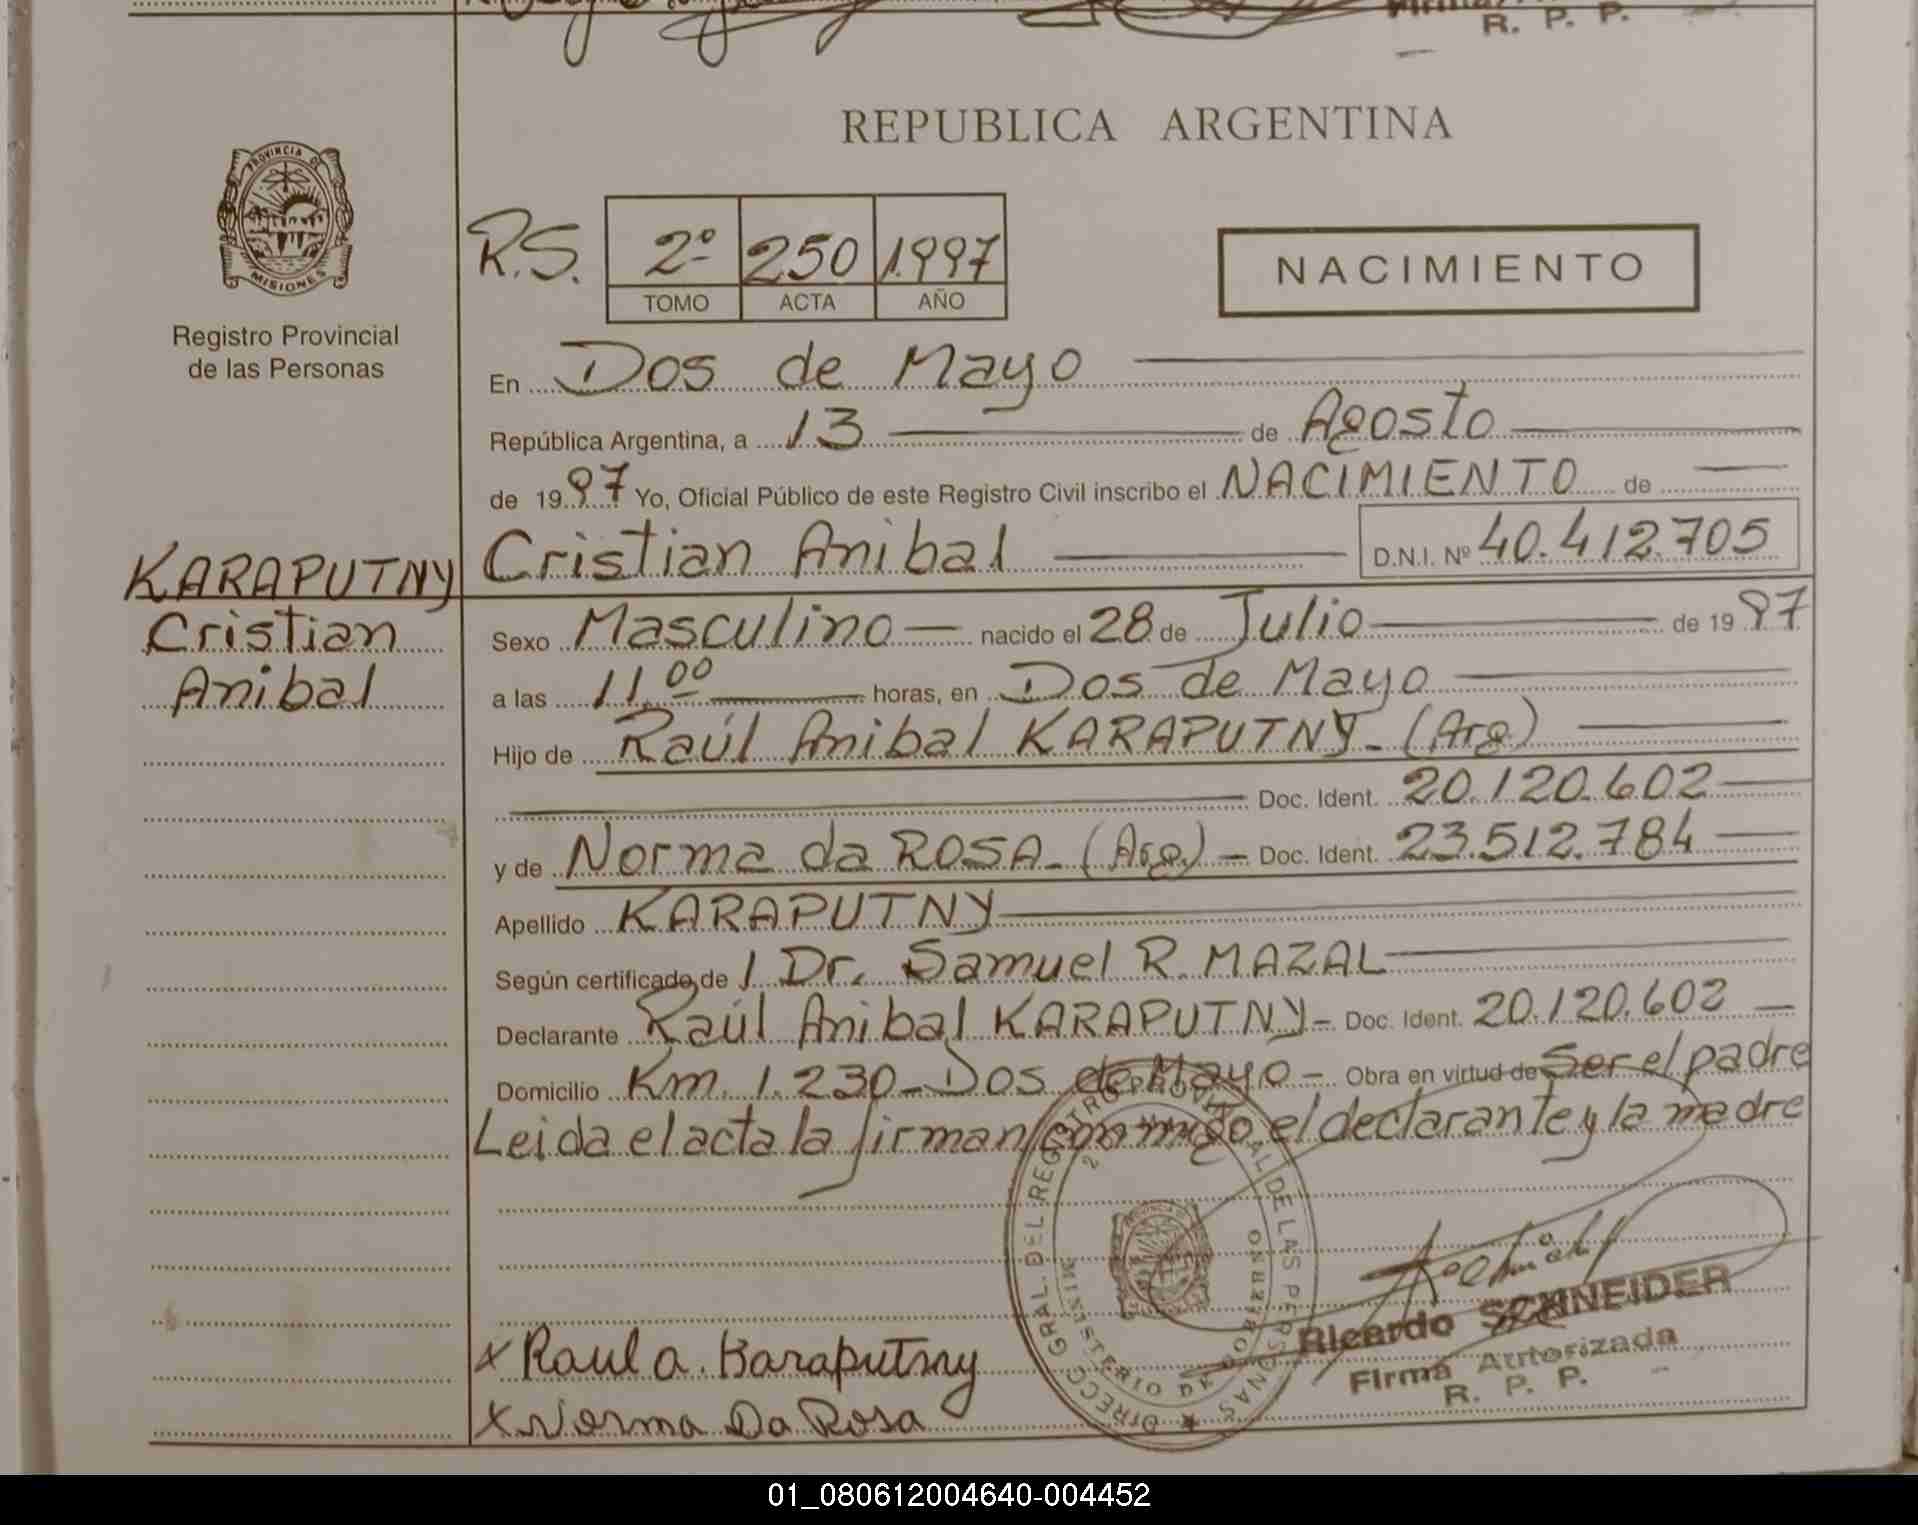 Firma
R. P. P.
REPUBLICA ARGENTINA
PROVINCIA DE
MISIONES
Registro Provincial
de las Personas
R.S. 2º 250 1997
TOMO ACTA AÑO
NACIMIENTO
En Dos de Mayo
República Argentina, a 13 de Agosto
de 1997 Yo, Oficial Público de este Registro Civil inscribo el NACIMIENTO de
Cristian Anibal D.N.I. Nº 40.412.705
KARAPUTNY
Cristian
Anibal
Sexo Masculino — nacido el 28 de Julio de 1997
a las 11,00 horas, en Dos de Mayo
Hijo de Raúl Anibal KARAPUTNY - (Arg)
Doc. Ident. 20.120.602
y de Norma da ROSA - (Arg.) - Doc. Ident. 23.512.784
Apellido KARAPUTNY
Según certificado de / Dr. Samuel R. MAZAL
Declarante Raúl Anibal KARAPUTNY - Doc. Ident. 20.120.602
Domicilio Km. 1.230 - Dos de Mayo - Obra en virtud de Ser el padre
Leida el acta la firman conmigo el declarante y la madre
DIRECC. GRAL. DEL REGISTRO PROVINCIAL DE LAS PERSONAS
MINISTERIO DE GOBIERNO
Ricardo SCHNEIDER
Firma Autorizada
R. P. P.
x Raul a. Karaputny
x Norma Da Rosa
01_080612004640-004452